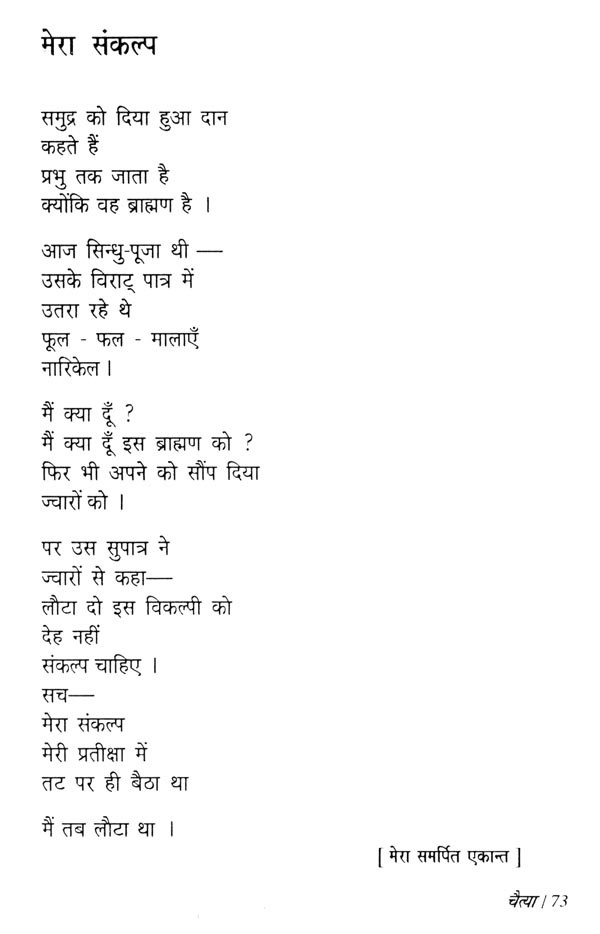 मेरा संकल्प
समुद्र को दिया हुआ दान
कहते हैं
प्रभु तक जाता है
क्योंकि वह ब्राह्मण है ।
आज सिन्धु-पूजा थी —
उसके विराट् पात्र में
उतरा रहे थे
फूल - फल - मालाएँ
नारिकेल ।
मैं क्या दूँ ?
मैं क्या दूँ इस ब्राह्मण को ?
फिर भी अपने को सौंप दिया
ज्वारों को ।
पर उस सुपात्र ने
ज्वारों से कहा—
लौटा दो इस विकल्पी को
देह नहीं
संकल्प चाहिए ।
सच—
मेरा संकल्प
मेरी प्रतीक्षा में
तट पर ही बैठा था
मैं तब लौटा था ।
[ मेरा समर्पित एकान्त ]
चैत्या / 73